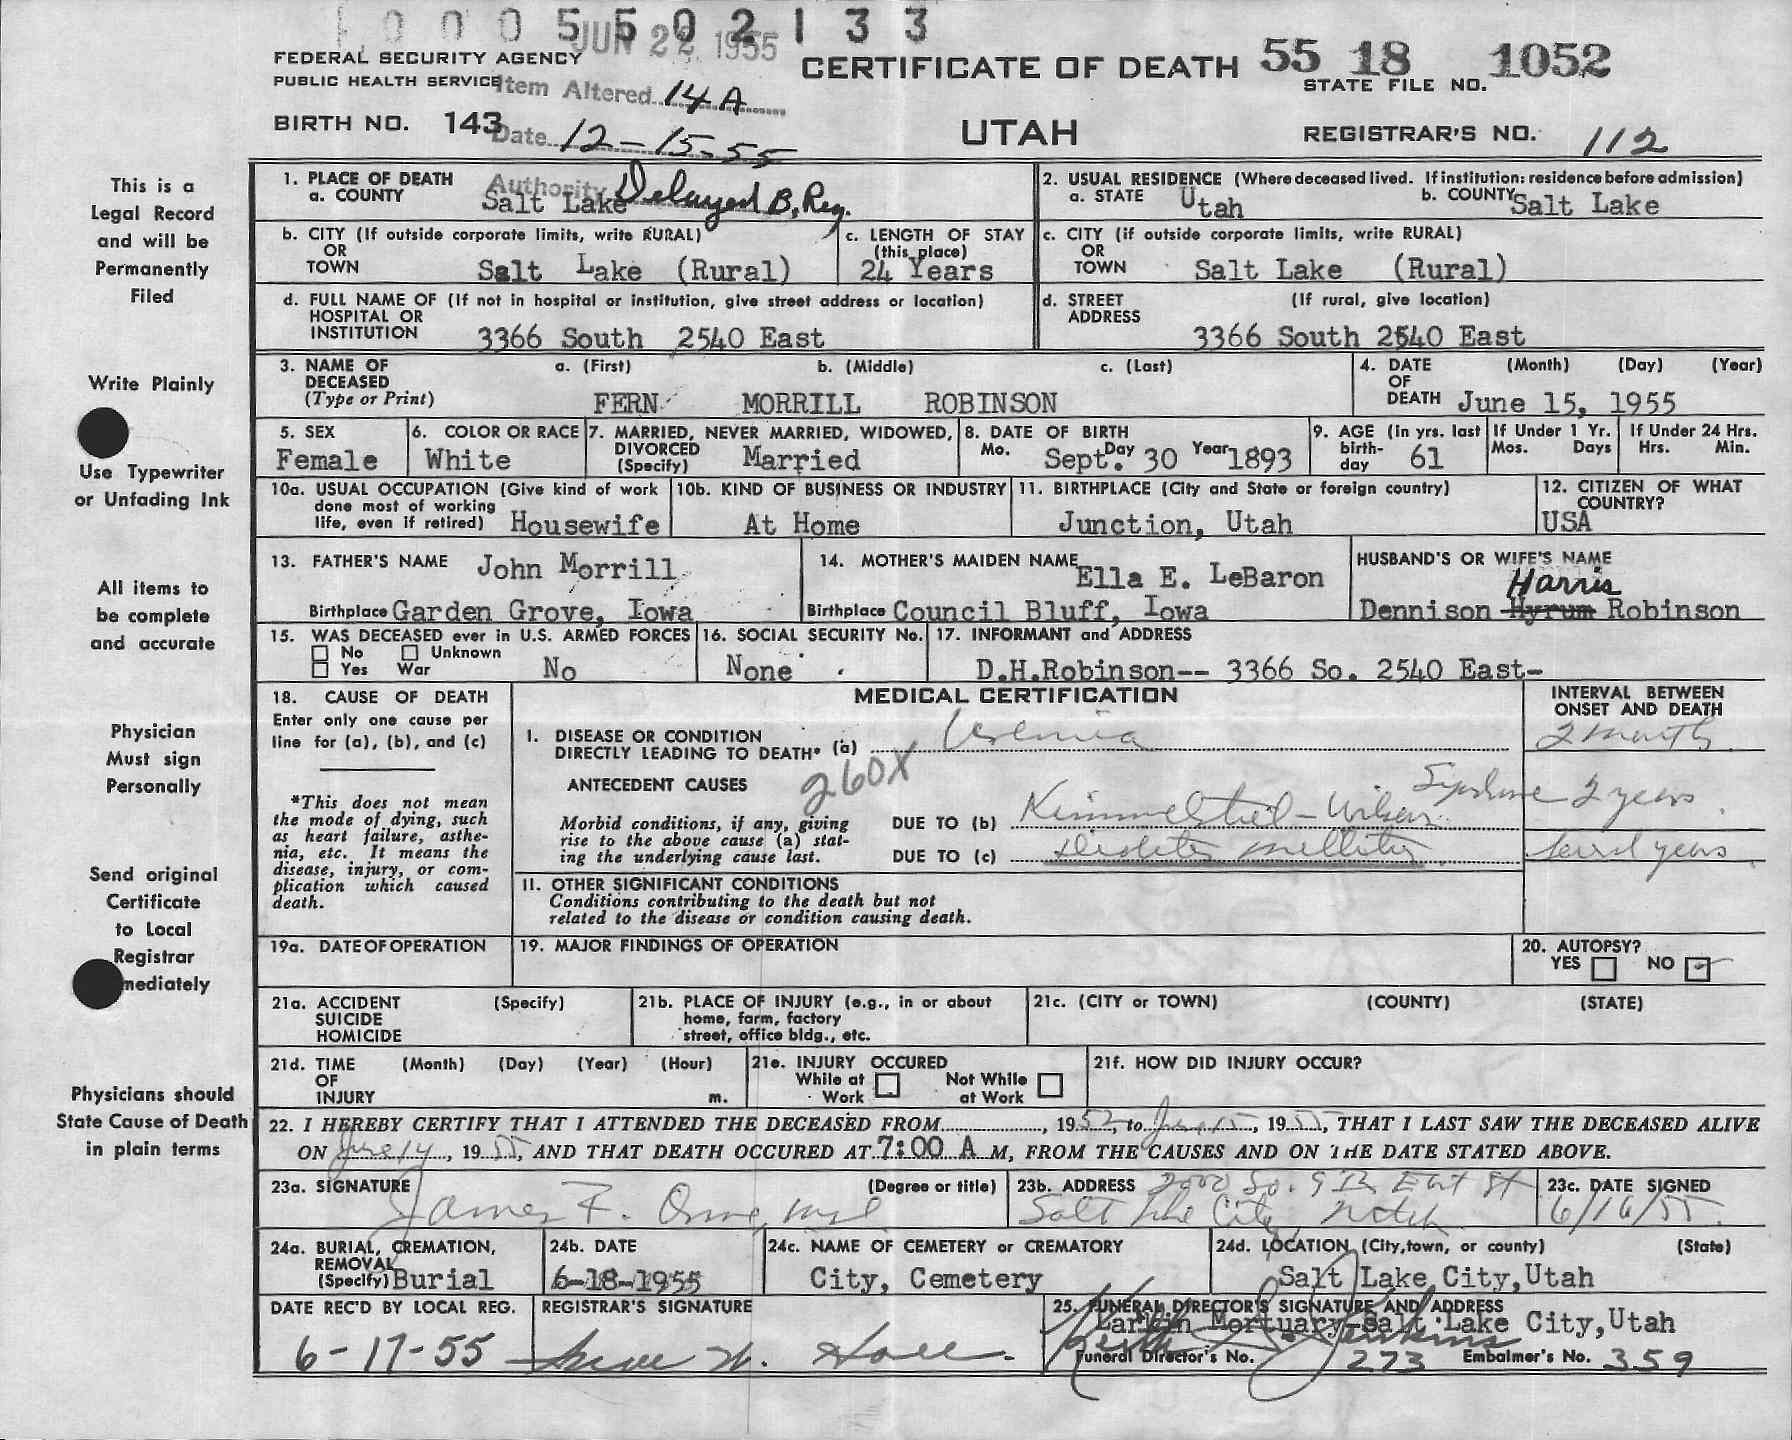 0 0 0 5 5 0 2 1 3 3
JUN 22 1955
FEDERAL SECURITY AGENCY
PUBLIC HEALTH SERVICE
Item Altered 14A
CERTIFICATE OF DEATH
55 18 1052
STATE FILE NO.
BIRTH NO. 143
Date 12-15-55
UTAH
REGISTRAR'S NO. 112
This is a
Legal Record
and will be
Permanently
Filed
Write Plainly
Use Typewriter
or Unfading Ink
All items to
be complete
and accurate
Physician
Must sign
Personally
Send original
Certificate
to Local
Registrar
mediately
Physicians should
State Cause of Death
in plain terms
1. PLACE OF DEATH
a. COUNTY
Authority Delayed B. Reg.
Salt Lake
2. USUAL RESIDENCE (Where deceased lived. If institution: residence before admission)
a. STATE Utah
b. COUNTY Salt Lake
b. CITY (If outside corporate limits, write RURAL)
OR
TOWN Salt Lake (Rural)
c. LENGTH OF STAY
(this place)
24 Years
c. CITY (if outside corporate limits, write RURAL)
OR
TOWN Salt Lake (Rural)
d. FULL NAME OF (If not in hospital or institution, give street address or location)
HOSPITAL OR
INSTITUTION 3366 South 2540 East
d. STREET (If rural, give location)
ADDRESS
3366 South 2540 East
3. NAME OF a. (First) b. (Middle) c. (Last)
DECEASED
(Type or Print) FERN MORRILL ROBINSON
4. DATE (Month) (Day) (Year)
OF
DEATH June 15, 1955
5. SEX
Female
6. COLOR OR RACE
White
7. MARRIED, NEVER MARRIED, WIDOWED,
DIVORCED
(Specify) Married
8. DATE OF BIRTH
Mo. Sept. Day 30 Year 1893
9. AGE (in yrs. last
birth-
day 61
If Under 1 Yr.
Mos. Days
If Under 24 Hrs.
Hrs. Min.
10a. USUAL OCCUPATION (Give kind of work
done most of working
life, even if retired) Housewife
10b. KIND OF BUSINESS OR INDUSTRY
At Home
11. BIRTHPLACE (City and State or foreign country)
Junction, Utah
12. CITIZEN OF WHAT
COUNTRY?
USA
13. FATHER'S NAME John Morrill
Birthplace Garden Grove, Iowa
14. MOTHER'S MAIDEN NAME Ella E. LeBaron
Birthplace Council Bluff, Iowa
HUSBAND'S OR WIFE'S NAME
Harris
Dennison Hyrum Robinson
15. WAS DECEASED ever in U.S. ARMED FORCES
No Unknown
Yes War No
16. SOCIAL SECURITY No.
None
17. INFORMANT and ADDRESS
D.H.Robinson-- 3366 So. 2540 East-
18. CAUSE OF DEATH
Enter only one cause per
line for (a), (b), and (c)
*This does not mean
the mode of dying, such
as heart failure, asthe-
nia, etc. It means the
disease, injury, or com-
plication which caused
death.
MEDICAL CERTIFICATION
INTERVAL BETWEEN
ONSET AND DEATH
I. DISEASE OR CONDITION
DIRECTLY LEADING TO DEATH* (a) Uremia 2 months
260X
ANTECEDENT CAUSES
Morbid conditions, if any, giving
rise to the above cause (a) stat-
ing the underlying cause last.
DUE TO (b) Kimmelstiel-Wilson Syndrome 2 years
DUE TO (c) Diabetes mellitus several years
II. OTHER SIGNIFICANT CONDITIONS
Conditions contributing to the death but not
related to the disease or condition causing death.
19a. DATE OF OPERATION
19. MAJOR FINDINGS OF OPERATION
20. AUTOPSY?
YES NO
21a. ACCIDENT (Specify)
SUICIDE
HOMICIDE
21b. PLACE OF INJURY (e.g., in or about
home, farm, factory
street, office bldg., etc.
21c. (CITY or TOWN) (COUNTY) (STATE)
21d. TIME (Month) (Day) (Year) (Hour)
OF
INJURY m.
21e. INJURY OCCURED
While at Work
Not While at Work
21f. HOW DID INJURY OCCUR?
22. I HEREBY CERTIFY THAT I ATTENDED THE DECEASED FROM , 1952, to June 15, 1955, THAT I LAST SAW THE DECEASED ALIVE
ON June 14, 1955, AND THAT DEATH OCCURED AT 7:00 A M, FROM THE CAUSES AND ON THE DATE STATED ABOVE.
23a. SIGNATURE (Degree or title)
James F. Orme, M.D.
23b. ADDRESS 2000 So. 9th East St
Salt Lake City, Utah
23c. DATE SIGNED
6/16/55
24a. BURIAL, CREMATION,
REMOVAL
(Specify) Burial
24b. DATE
6-18-1955
24c. NAME OF CEMETERY or CREMATORY
City, Cemetery
24d. LOCATION (City, town, or county) (State)
Salt Lake City, Utah
DATE REC'D BY LOCAL REG.
6-17-55
REGISTRAR'S SIGNATURE
25. FUNERAL DIRECTOR'S SIGNATURE AND ADDRESS
Larkin Mortuary-Salt Lake City, Utah
Funeral Director's No. 273 Embalmer's No. 359